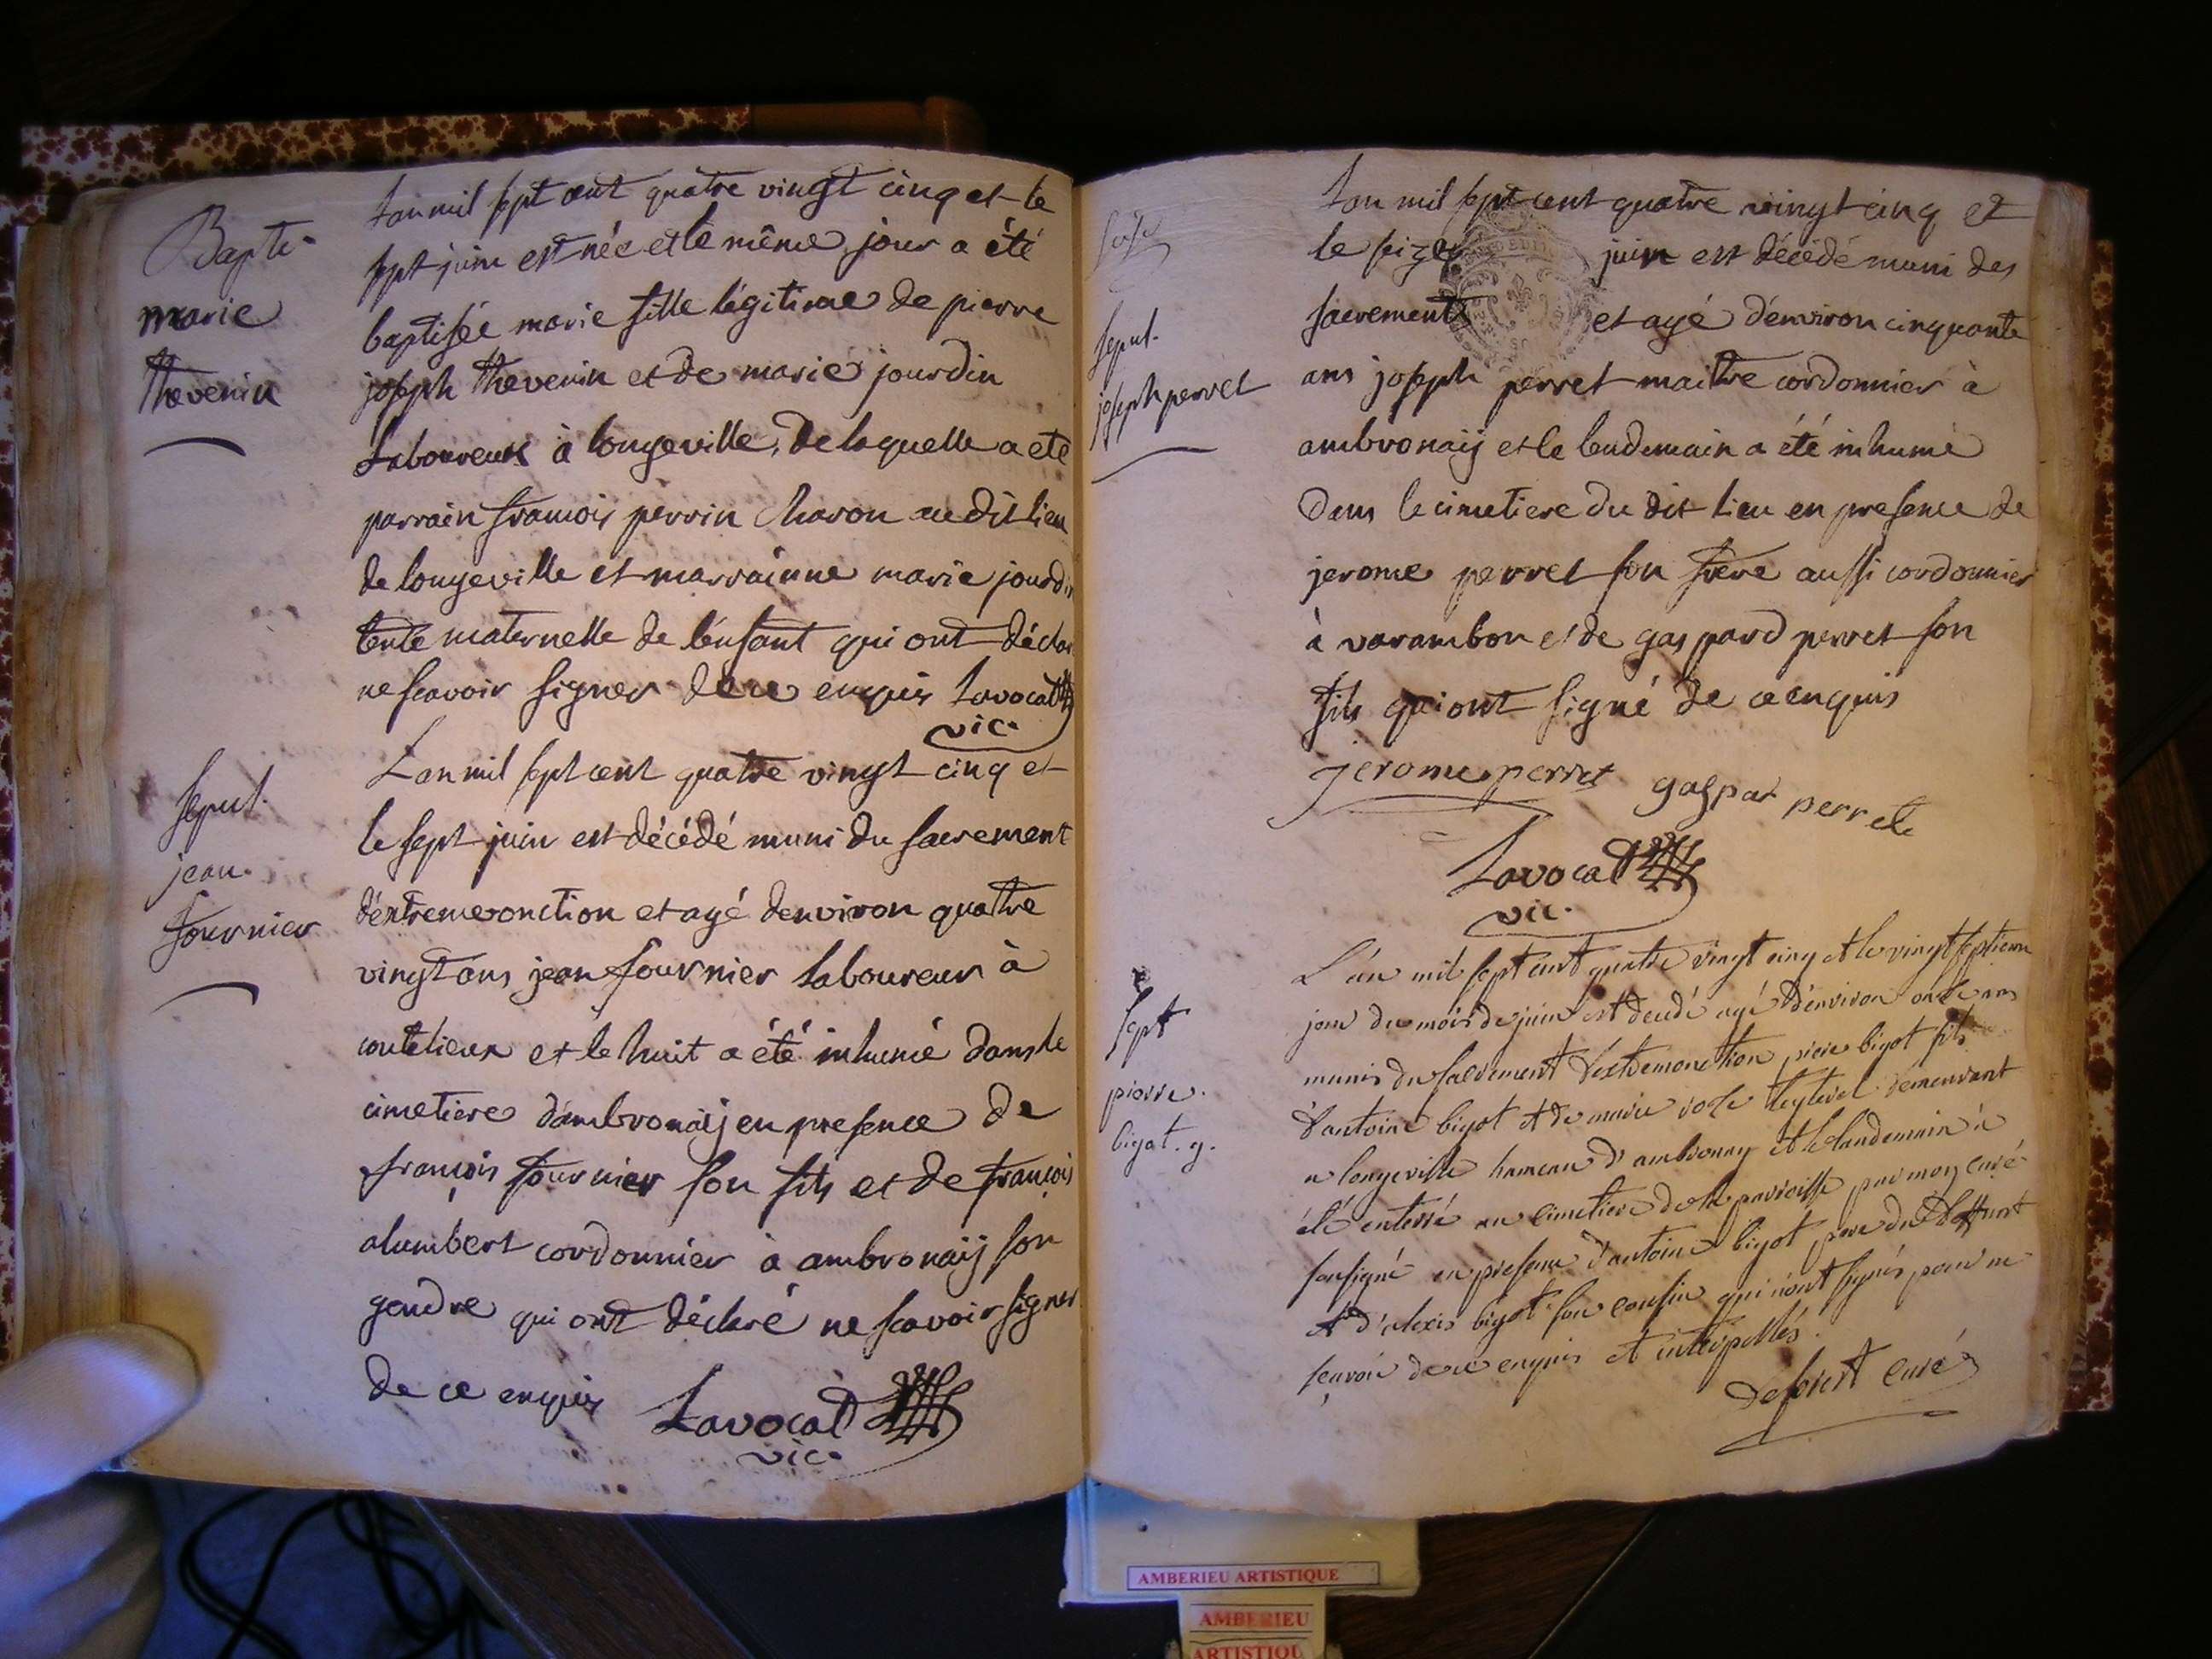 Bapte
marie
thevenin
Lan mil sept cent quatre vingt cinq et le
sept juin est née et le même jour a été
baptisée marie fille légitime de pierre
joseph thevenin et de marie jourdin
Laboureur à longeville, de laquelle a eté
parrain francois perrin charon audit lieu
de longeville et marrainne marie jourdin
tente maternelle de l'enfant qui ont déclar
ne scavoir signer de ce enquis Lavocat
vic.
sepul.
jean.
fournier
Lan mil sept cent quatre vingt cinq et
le sept juin est décédé muni du sacrement
d'extremeonction et agé denviron quatre
vingt ans jean fournier laboureur à
coutelieux et le huit a été inhumé dans le
cimetiere d'ambronaij en presence de
françois fournier son fils et de françois
alumbert cordonnier à ambronaij son
gendre qui ont déclaré ne scavoir signer
de ce enquis Lavocat
vic.
sepul.
joseph perret
Lan mil sept cent quatre vingt cinq et
le seize juin est décédé muni des
sacrements et agé d'environ cinquante
ans joseph perret maitre cordonnier à
ambronaij et le lendemain a été inhumé
dans le cimetiere du dit lieu en presence de
jerome perret son frere aussi cordonnier
à varambon et de gaspard perret son
fils qui ont signé de ce enquis
jerome perret gaspar perret
Lavocat
vic.
sept
pierre.
bigot. g.
L'an mil sept cent quatre vingt cinq et le vingt septieme
jour du mois de juin est decedé agé d'environ onze ans
munis du sacrement d'extremonction pierre bigot fils
d'antoine bigot et de marie demeurant
a longeville hameau d'ambronay et le landemain a
été enterré au cimetiere de la parroisse par moy curé
sousigné en presence d'antoine bigot pere du deffunt
et d'alexis bigot son cousin qui n'ont signés pour ne
sçavoir de ce enquis et interpellés.
deforest curé
AMBERIEU ARTISTIQUE
AMBERIEU